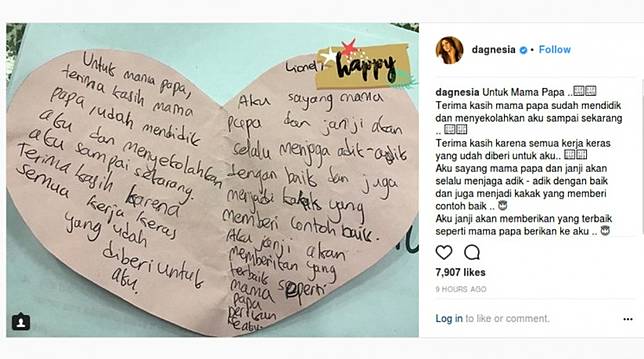 Untuk mama papa,
terima kasih mama
papa, udah mendidik
aku dan menyekolahkan
aku sampai sekarang.
Terima kasih karena
semua kerja keras
yang udah
diberi untuk
aku.
Lionel :
happy
Aku sayang mama
papa dan janji akan
selalu menjaga adik-adik
dengan baik dan juga
menjadi kakak yang
memberi contoh baik.
Aku janji akan
memberikan yang
terbaik seperti
mama
papa
berikan
dagnesia • Follow
dagnesia Untuk Mama Papa ..
Terima kasih mama papa sudah mendidik
dan menyekolahkan aku sampai sekarang
..
Terima kasih karena semua kerja keras
yang udah diberi untuk aku..
Aku sayang mama papa dan janji akan
selalu menjaga adik - adik dengan baik
dan juga menjadi kakak yang memberi
contoh baik ..
Aku janji akan memberikan yang terbaik
seperti mama papa berikan ke aku ..
7,907 likes
9 HOURS AGO
Log in to like or comment.